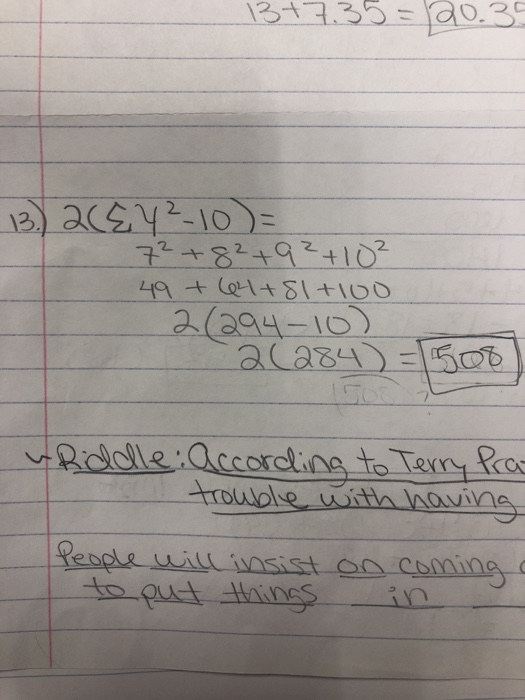 13+7.35 = 20.35
13.) 2(ΣY²-10)=
7² + 8² + 9² + 10²
49 + 64 + 81 + 100
2(294-10)
2(284) = 508
Riddle: According to Terry Pra
trouble with having
People will insist on coming
to put things in